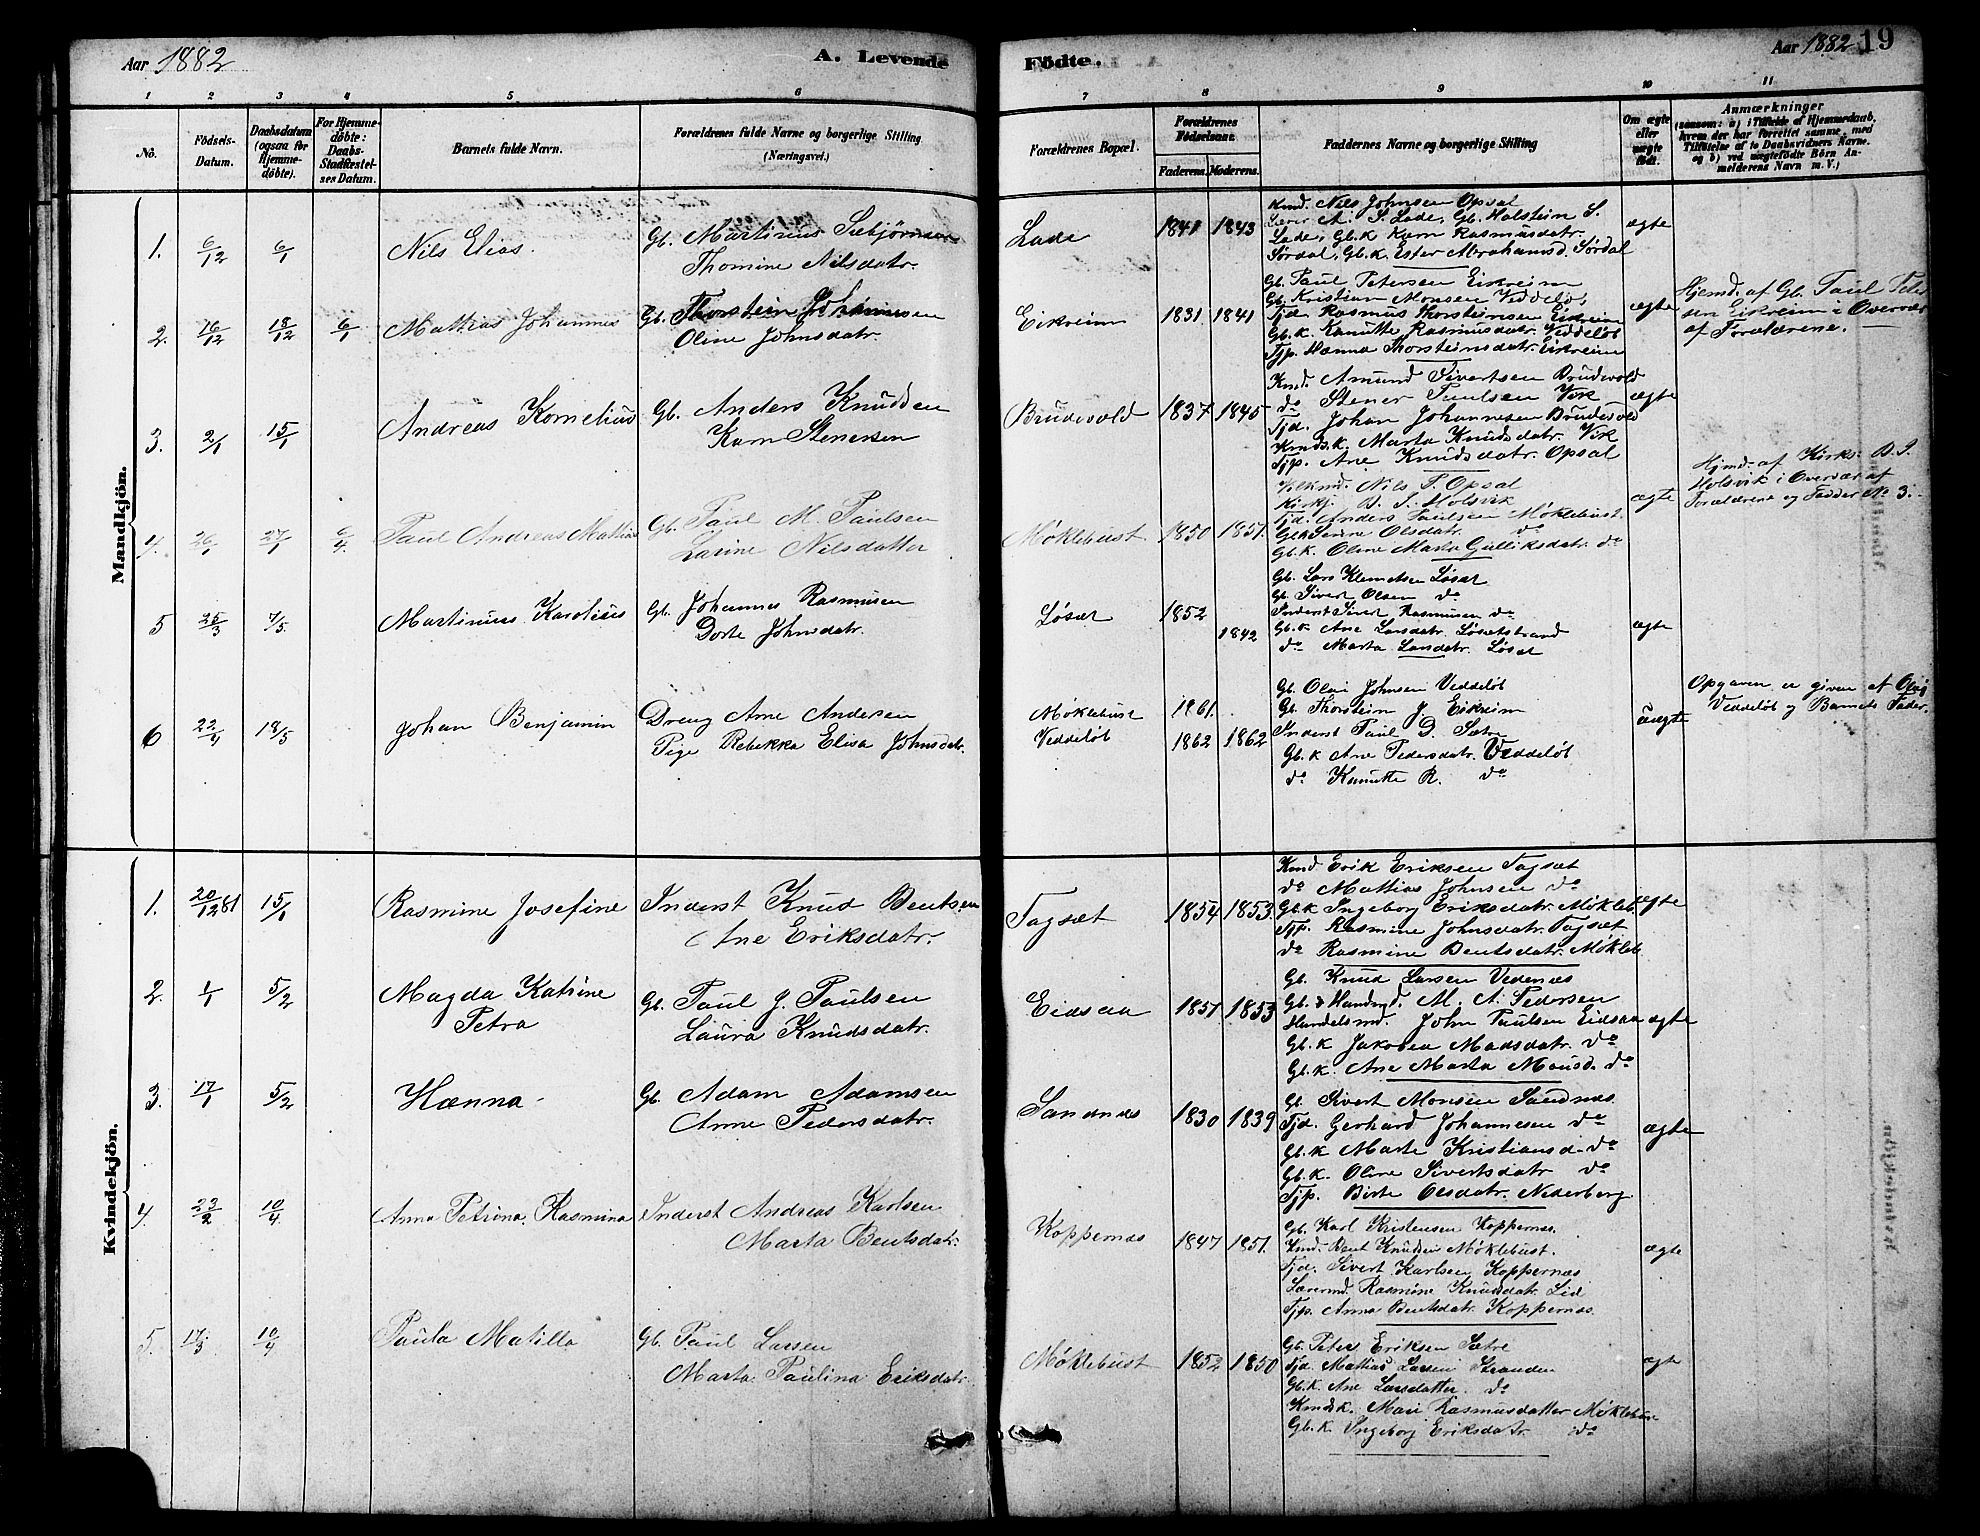 Aar 1882
A. Levende
Födte.
Aar 1882
19
1 2 3 4 5 6 7 8 9 10 11
No.
Födsels-
Datum.
Daabsdatum
(ogsaa for
Hjemme-
döbte).
For Hjemme-
döbte:
Daabs-
Stadfæstel-
ses Datum.
Barnets fulde Navn.
Forældrenes fulde Navne og borgerlige Stilling
(Næringsvei.)
Forældrenes Bopæl.
Forældrenes
Födselsaar.
Faderens. Moderens.
Faddernes Navne og borgerlige Stilling
Om ægte
eller
uægte
födt.
Anmærkninger
(saasom: a) i Tilfælde af Hjemmedaab,
hvem der har forrettet samme, med
Tilföielse af to Daabsvidners Navne.
og b) ved uægtefödte Börn An-
melderens Navn m. V.)
Mandkjön.
1. 6/12 6/1 Nils Elias.
Gb. Martinus Sebjørnsen
Thomine Nilsdatr.
Lade 1841 1843
Kmd. Nils Johnsen Opsal
A. S. Lade, Gb. Holstein S.
Lade, Gb.k Karn Rasmusdatr.
Sørdal, Gb.k. Ester Abrahamsd. Sørdal
ægte
2. 16/12 18/12 6/1 Mathias Johannes
Gb. Thorstein Johannesen
Oline Johnsdatr.
Eikreim 1831 1841
Gb. Paul Petersen Eikreim
Gb. Kristian Monsen Veddeløb,
Tjd. Rasmus Thorsteinsen Eikreim
Gb.k. Knutte Rasmusdatr. Veddeløb
Tjp. Hanna Thorsteinsdatr. Eikreim
ægte
Hjemd. af Gb. Paul Peter
sen Eikreim i Overvær
af Forældrene.
3. 2/1 15/1 Andreas Kornelius
Gb. Anders Knudsen
Karn Stenersen
Brudevold 1837 1845
Kmd. Amund Sivertsen Brudevold
do Stener Paulsen Vik
Tjd. Johan Johannesen Brudevold
Kmds.k. Marta Knudsdatr. Vik
Tjp. Ane Knudsdatr. Opsal
ægte
4. 26/1 27/1 6/4. Paul Andreas Mathias
Gb. Paul M. Paulsen
Larine Nilsdatter
Møklebust 1850 1851.
Nils T. Opsal
Kirkj. B. S. Holsvik
Tjd. Anders Paulsen Møklebust
Gb.k Serine Olsdatr. do
Gb.k. Oline Marta Gulliksdatr. do
ægte
Hjmd. af Kirks. B. S.
Holsvik i Overvær af
Forældrene og Fadder No 3.
5 25/3 7/5. Martinus Karolius
Gb. Johannes Rasmusen
Dorte Johnsdatr.
Løset 1852 1842
Gb. Lars Klemetsen Løset
Gb. Sivert Olsen do
Inderst Sivert Rasmusen do
Gb.k Ane Larsdatr. Løsetstrand
do Marta Larsdatr. Løset
ægte
6 22/4 18/5 Johan Benjamin
Dreng Arne Andersen
Pige Rebekka Elisa Johnsdatr.
Møklebust 1861.
Veddeløb 1862 1862
Gb. Olai Johnsen Veddeløb
Gb. Thorstein J. Eikreim
Inderst Paul D. Sætre
Gb.k Ane Pedersdatr. Veddeløb
do Knutte R. do
uægte
Opgaven er given af Olai
Veddeløb og Barnets Fader.
Kvindekjön.
1. 20/12 81 15/1 Rasmine Josefine
Inderst Knud Bentsen
Ane Eriksdatr.
Tagsæt 1854 1853.
Kmd Erik Eriksen Tagsæt
do Mathias Johnsen do
Gb.k Ingeborg Eriksdatr. Mökleb.
Tjp. Rasmine Johnsdatr. Tagsæt
do Rasmine Bentsdatr. Møkleb.
ægte
2. 1/1 5/2 Magda Katrine
Petra
Gb. Paul J. Paulsen
Laura Knudsdatr.
Eidsaa 1851 1853
Gb. Knud Larsen Vedenæs
Gb. & Handsmd. M. A. Pedersen
Handelsmd. John Paulsen Eidsaa
Gb.k Jakobea Madsdatr. do
Gb.k. Ane Marta Monsd. do
ægte
3. 17/1 5/2 Hanna
Gb. Adam Adamsen
Anne Pedersdatr.
Sandnes 1830 1839
Gb. Sivert Monsen Sandnæs.
Tjd. Gerhard Johannesen do
Gb.k Marte Kristiansd. do
Gb.k. Oline Sivertsdatr do
Tjp. Birte Olsdatr. Nederberg
ægte
4. 23/2 10/4 Anna Petrina Rasmina
Inderst Andreas Karlsen
Marta Bentsdatr.
Koppernæs 1847 1851.
Gb. Karl Kristensen Koppernæs.
Kmd. Bent Knudsen Møklebust.
Tjd. Sivert Karlsen Koppernæs
Rasmine Knudsdatr. Lid
Tjp. Anna Bentsdatr. Koppernæs.
ægte
5. 17/3 10/4 Paula Matilla
Gb. Paul Larsen
Marta Paulina Eriksdatr
Møklebust 1852 1850
Gb. Peter Eriksen Sætre
Tjd. Mathias Larsen Stranden
Gb.k. Ane Larsdatter. do
Kmds.k. Mari Rasmusdatter Møklebust
Gb.k Ingeborg Eriksdatr. do
ægte